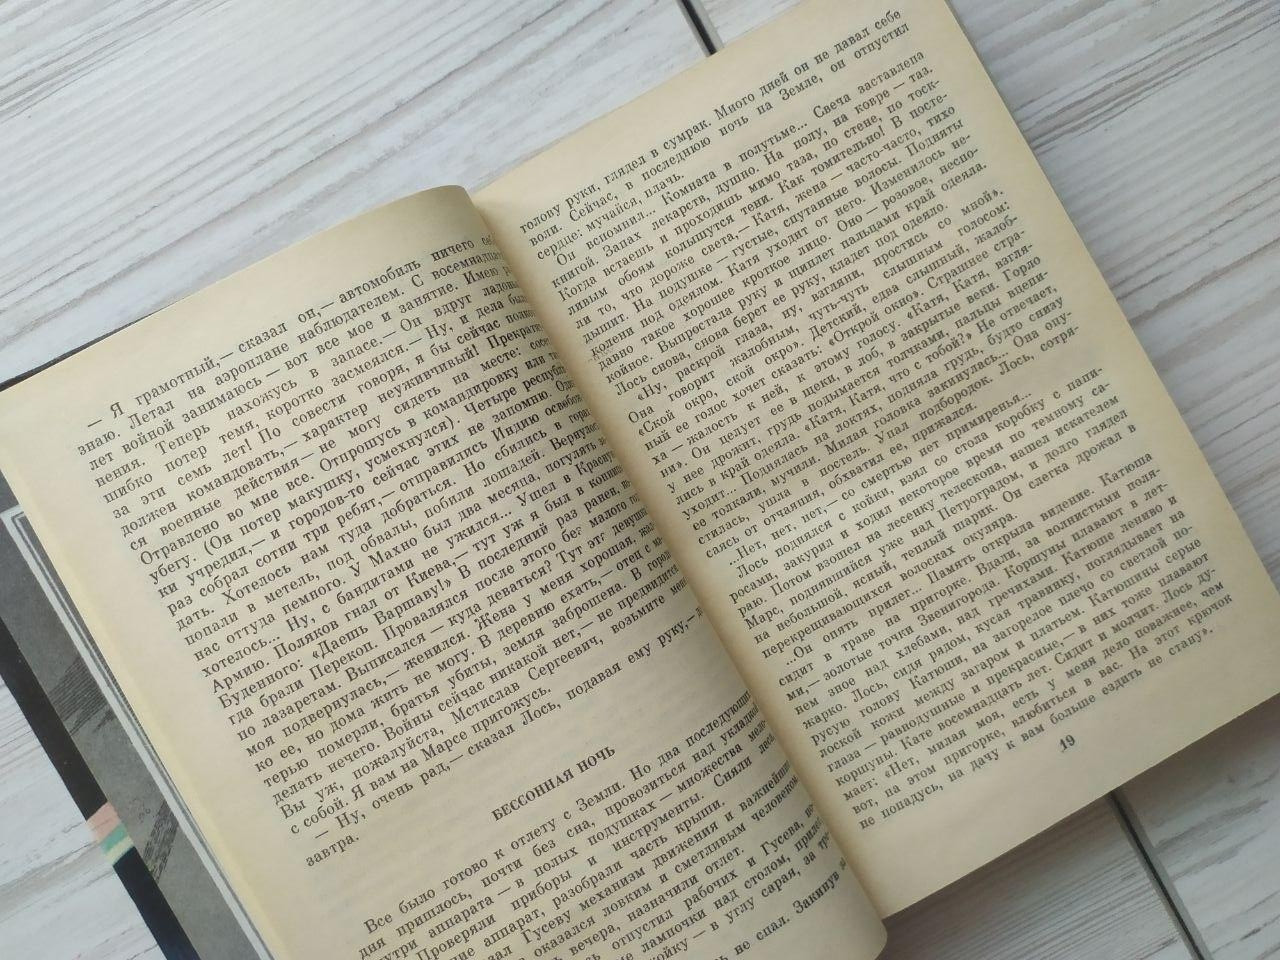 — Я грамотный,— сказал он,— автомобиль ничего себе
знаю. Летал на аэроплане наблюдателем. С восемнадцати
лет войной занимаюсь — вот все мое и занятие. Имею
ранения. Теперь нахожусь в запасе.— Он вдруг ладонью
шибко потер темя, коротко засмеялся.— Ну, и дела были
за эти семь лет! По совести говоря, я бы сейчас полком
должен командовать,— характер неуживчивый! Прекратятся
военные действия — не могу сидеть на месте: сосет.
Отравлено во мне все. Отпрошусь в командировку или так
убегу. (Он потер макушку, усмехнулся). Четыре республики
учредил,— и городов-то сейчас этих не запомню. Один
раз собрал сотни три ребят,— отправились Индию освобождать.
Хотелось нам туда добраться. Но сбились в горах,
попали в метель, под обвалы, побили лошадей. Вернулось
нас оттуда немного. У Махно был два месяца, погулять
хотелось... Ну, с бандитами не ужился... Ушел в Красную
Армию. Поляков гнал от Киева,— тут уж я был в коннице
Буденного: «Даешь Варшаву!» В последний раз ранен,
когда брали Перекоп. Провалялся после этого без малого
по лазаретам. Выписался — куда деваться? Тут эта девушка
моя подвернулась,— женился. Жена у меня хорошая, жалко
ее, но дома жить не могу. В деревню ехать,— отец с матерью
померли, братья убиты, земля заброшена. В городе
делать нечего. Войны сейчас никакой нет,— не предвидится.
Вы уж, пожалуйста, Мстислав Сергеевич, возьмите меня
с собой. Я вам на Марсе пригожусь.
— Ну, очень рад,— сказал Лось, подавая ему руку,—
завтра.
БЕССОННАЯ НОЧЬ
Все было готово к отлету с Земли. Но два последующих
дня пришлось, почти без сна, провозиться над укладкой
внутри аппарата — в полых подушках — множества
Проверяли приборы и инструменты. Сняли леса,
аппарат, разобрали часть крыши.
Гусеву механизм движения и важнейшие
оказался ловким и сметливым человеком.
вечера, назначили отлет.
отпустил рабочих и Гусева,
лампочки над столом,
койку — в углу сарая, за
не спал. Закинув
голову руки, глядел в сумрак. Много дней он не давал себе
воли. Сейчас, в последнюю ночь на Земле, он отпустил
сердце: мучайся, плачь.
Он вспомнил... Комната в полутьме... Свеча заставлена
книгой. Запах лекарств, душно. На полу, на ковре — таз.
Когда встаешь и проходишь мимо таза, по стене, по тоск-
ливым обоям колышутся тени. Как томительно! В посте-
ли то, что дороже света,— Катя, жена — часто-часто, тихо
дышит. На подушке — густые, спутанные волосы. Подняты
колени под одеялом. Катя уходит от него. Изменилось не-
давно такое хорошее кроткое лицо. Оно — розовое, неспо-
койное. Выпростала руку и щиплет пальцами край одеяла.
Лось снова, снова берет ее руку, кладет под одеяло.
«Ну, раскрой глаза, ну, взгляни, простись со мной».
Она говорит жалобным, чуть-чуть слышным голосом:
«Ской окро, ской окро». Детский, едва слышный, жалоб-
ный ее голос хочет сказать: «Открой окно». Страшнее стра-
ха — жалость к ней, к этому голосу. «Катя, Катя, взгля-
ни». Он целует ее в щеки, в лоб, в закрытые веки. Горло
у нее дрожит, грудь подымается толчками, пальцы вцепи-
лись в край одеяла. «Катя, Катя, что с тобой?» Не отвечает,
уходит... Поднялась на локтях, подняла грудь, будто снизу
ее толкали, мучили. Милая головка закинулась... Она опу-
стилась, ушла в постель. Упал подбородок. Лось, сотря-
саясь от отчаяния, обхватил ее, прижался.
...Нет, нет, нет,— со смертью нет примиренья...
Лось поднялся с койки, взял со стола коробку с папи-
росами, закурил и ходил некоторое время по темному са-
раю. Потом взошел на лесенку телескопа, нашел искателем
Марс, поднявшийся уже над Петроградом, и долго глядел
на небольшой, ясный, теплый шарик. Он слегка дрожал в
перекрещивающихся волосках окуляра.
...Он опять прилег... Память открыла видение. Катюша
сидит в траве на пригорке. Вдали, за волнистыми поля-
ми,— золотые точки Звенигорода. Коршуны плавают в лет-
нем зное над хлебами, над гречихами. Катюше лениво и
жарко. Лось, сидя рядом, кусая травинку, поглядывает на
русую голову Катюши, на загорелое плечо со светлой по-
лоской кожи между загаром и платьем. Катюшины серые
глаза — равнодушные и прекрасные,— в них тоже плавают
коршуны. Кате восемнадцать лет. Сидит и молчит. Лось ду-
мает: «Нет, милая моя, есть у меня дело поважнее, чем
вот, на этом пригорке, влюбиться в вас. На этот крючок
не попадусь, на дачу к вам больше ездить не стану».
19